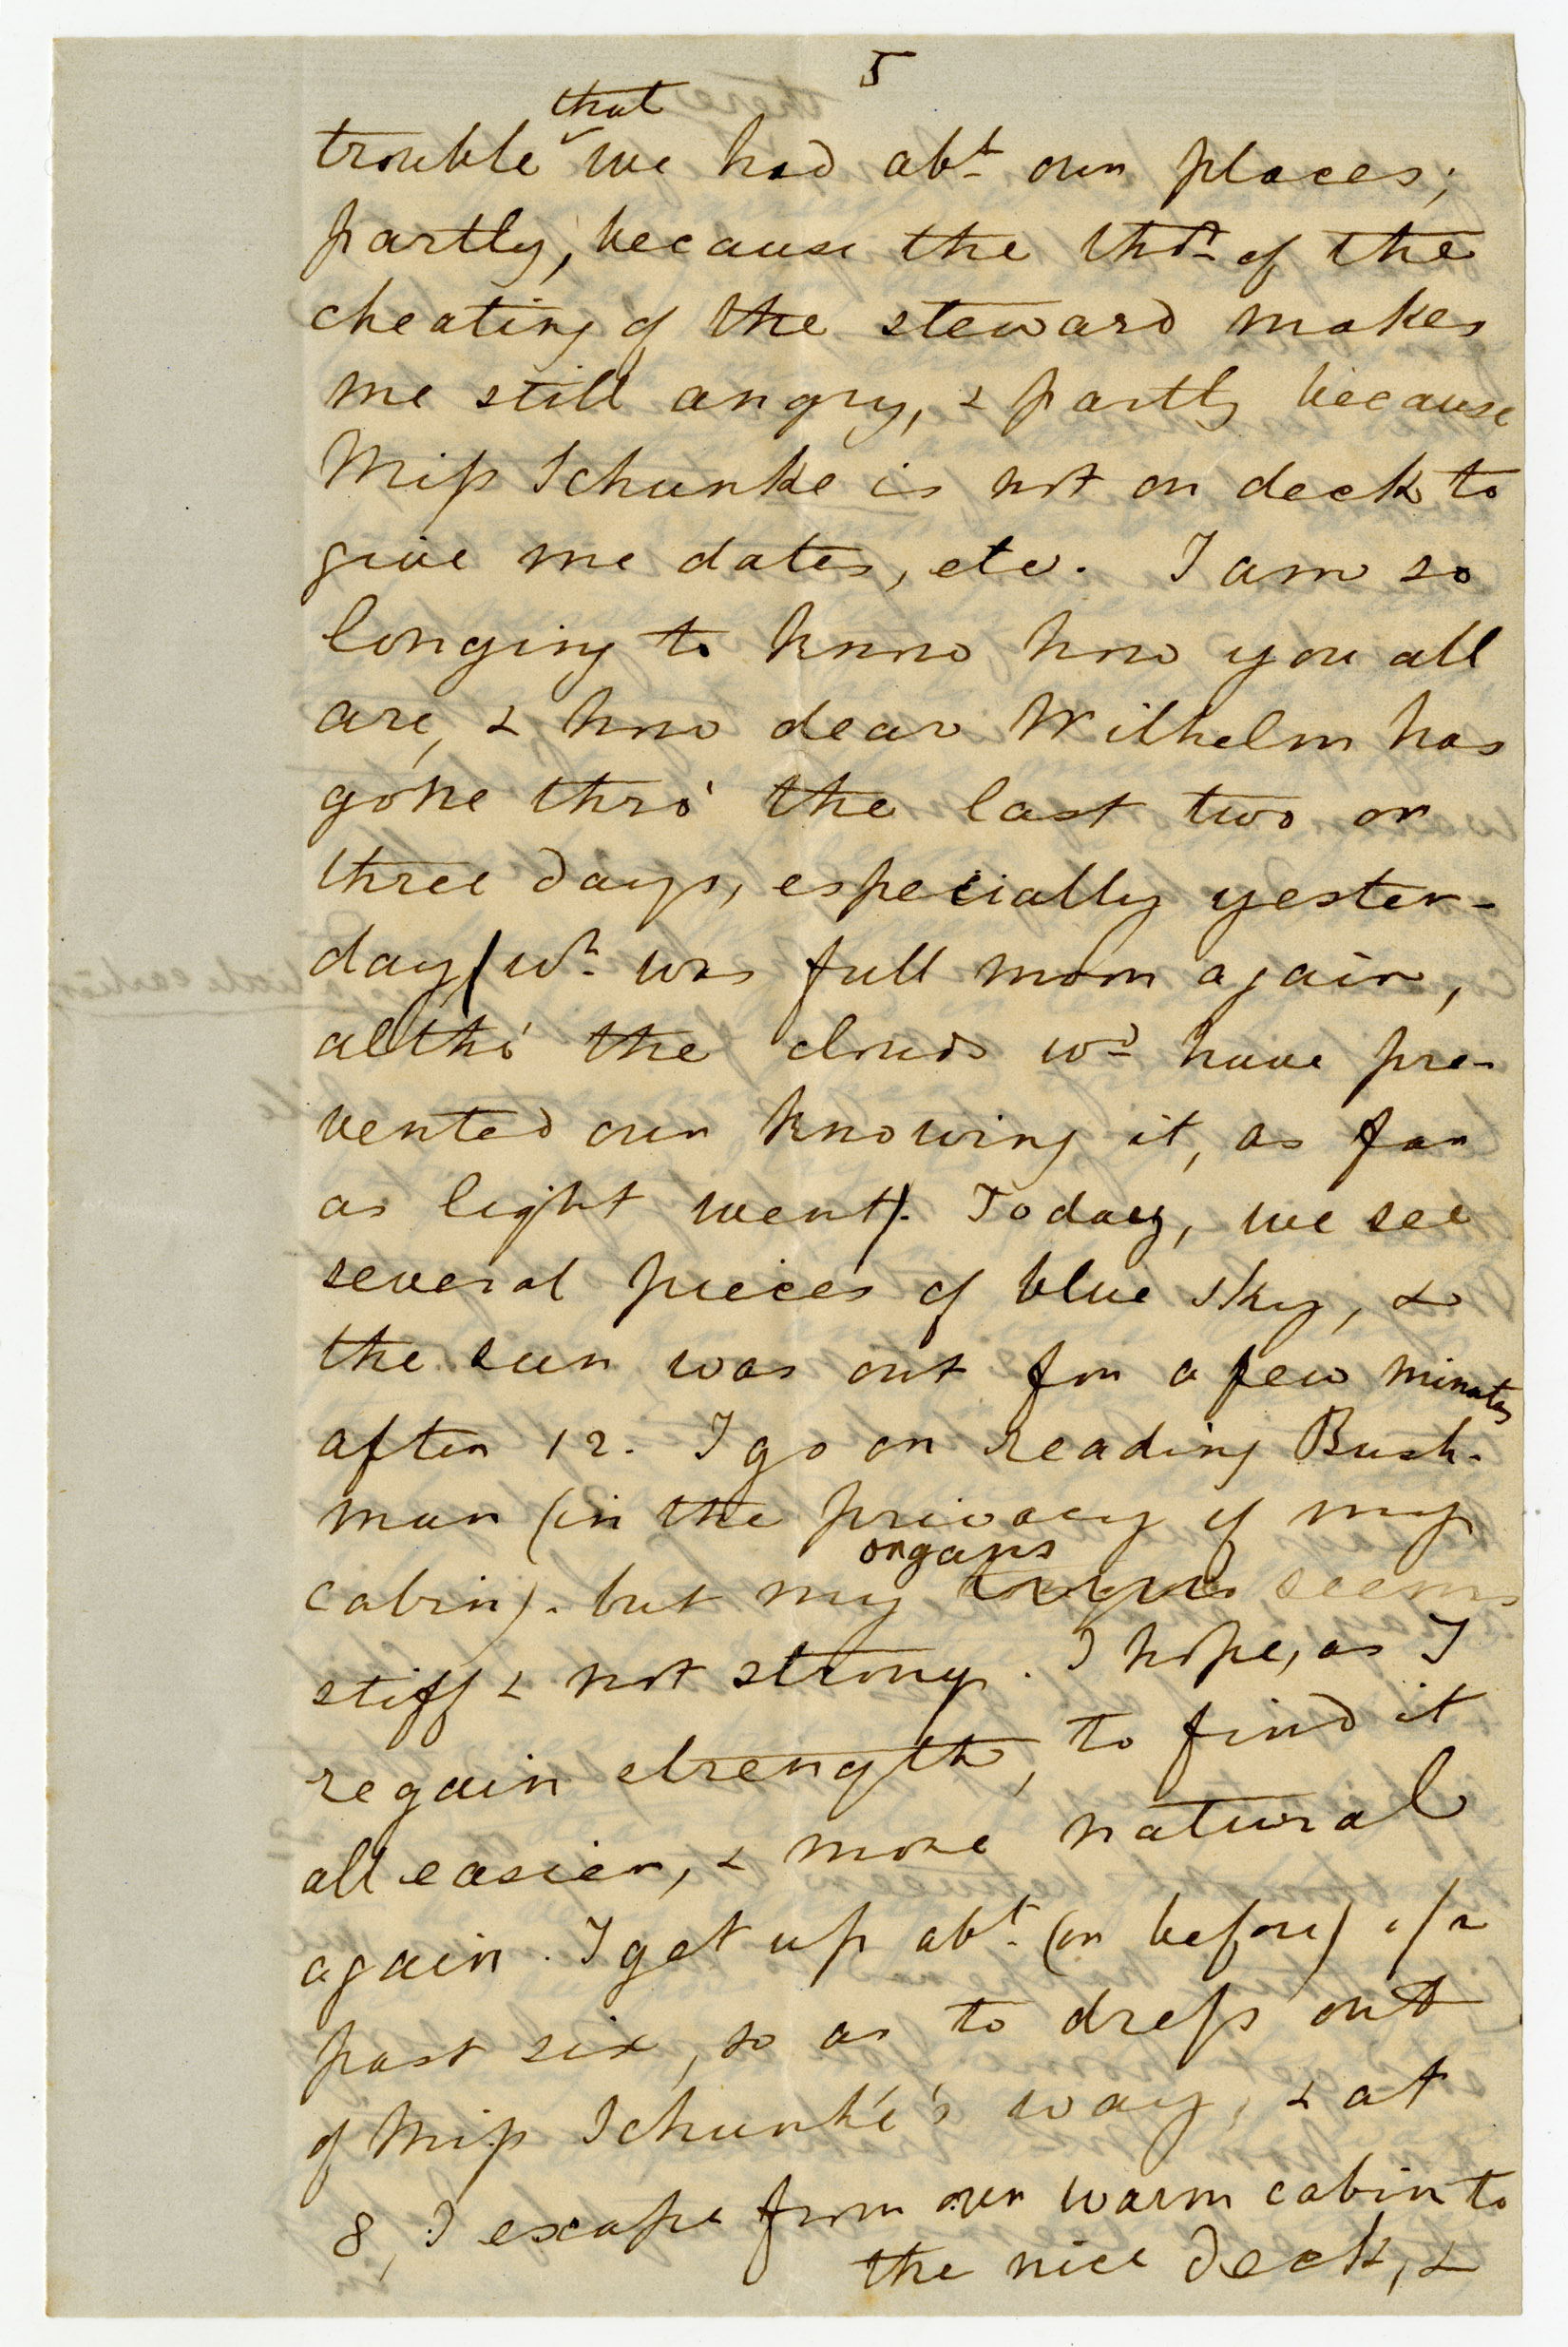 5
that
trouble we had abt. our places;
partly, because the tht. of the
cheating of the steward makes
me still angry, & partly because
Miss Schunke is not on deck to
give me dates, etc. I am so
longing to know how you all
are, & how dear Wilhelm has
gone thro' the last two or
three days, especially yester-
day (wh. was full moon again,
altho' the clouds wd. have pre-
vented our knowing it, as far
as light went). Today, we see
several pieces of blue sky, &
the sun was out for a few minutes
after 12. I go on reading Bush-
man (in the privacy of my
organs
cabin). but my seem
stiff & not strong. I hope, as I
regain strength, to find it
all easier, & more natural
again. I get up abt. (or before) 1/2
past six, so as to dress out
of Miss Schunke's way, & at
8, I escape from our warm cabin to
the nice deck, &